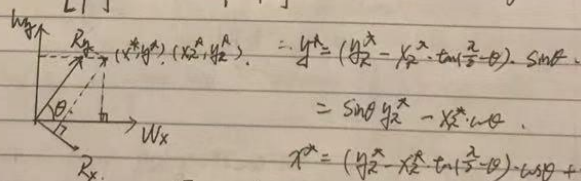 Wy
Ry (x*, y*). (x₂*, y₂*). ∴ y* = (y₂* - x₂*·tan(π/2-θ))·sinθ.
θ
= sinθ y₂* - x₂*·cosθ.
Wx
Rx
x* = (y₂* - x₂*·tan(π/2-θ))·cosθ +